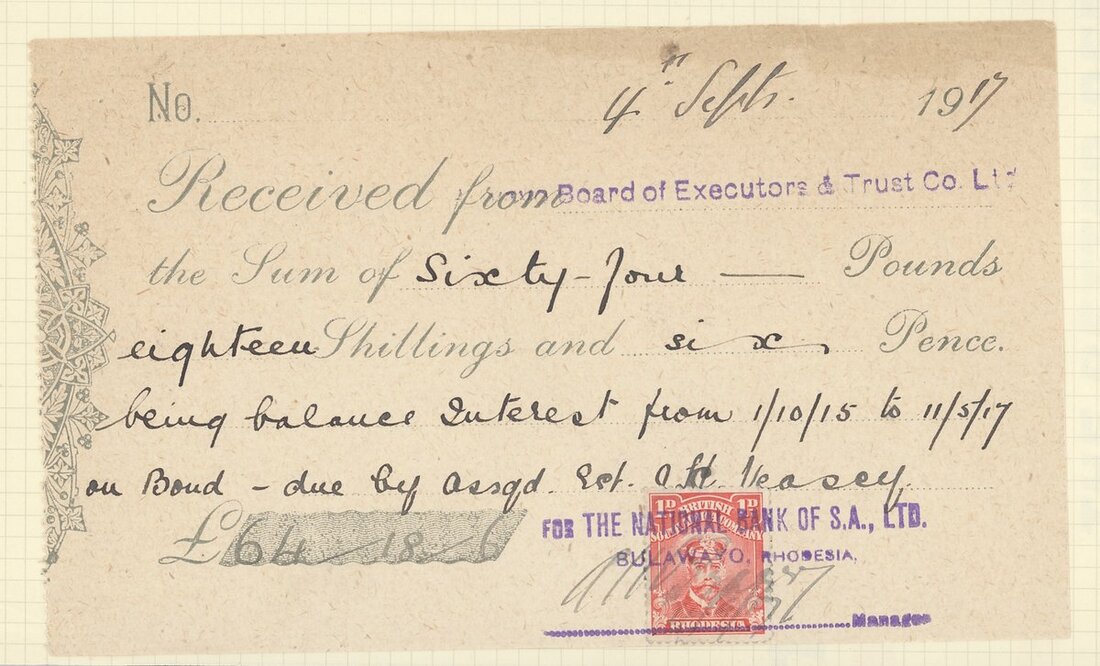 No. 4th Septr. 1917
Received from Board of Executors & Trust Co. Ltd
the Sum of Sixty-four — Pounds
eighteen Shillings and six Pence.
being balance Interest from 1/10/15 to 11/5/17
on Bond - due by Assgd. Est. H. Veasey
£64 - 18 - 6
1D BRITISH 1D
SOUTH AFRICA COMPANY
FOR THE NATIONAL BANK OF S.A., LTD.
BULAWAYO, RHODESIA.
RHODESIA
Manager